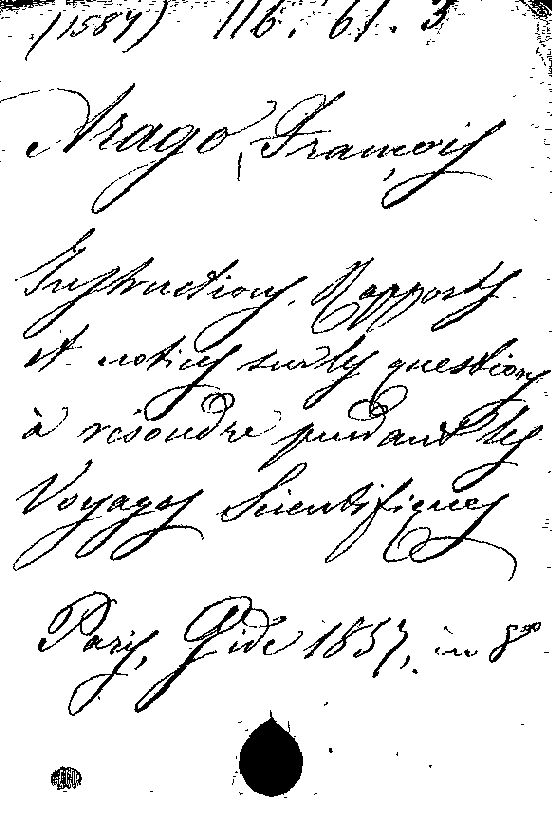 (1587) 116. 61. 3
Arago, François
Instructions, Rapports
et notices sur les questions
à résoudre pendant les
Voyages Scientifiques
Paris, Gide 1857, in 8vo